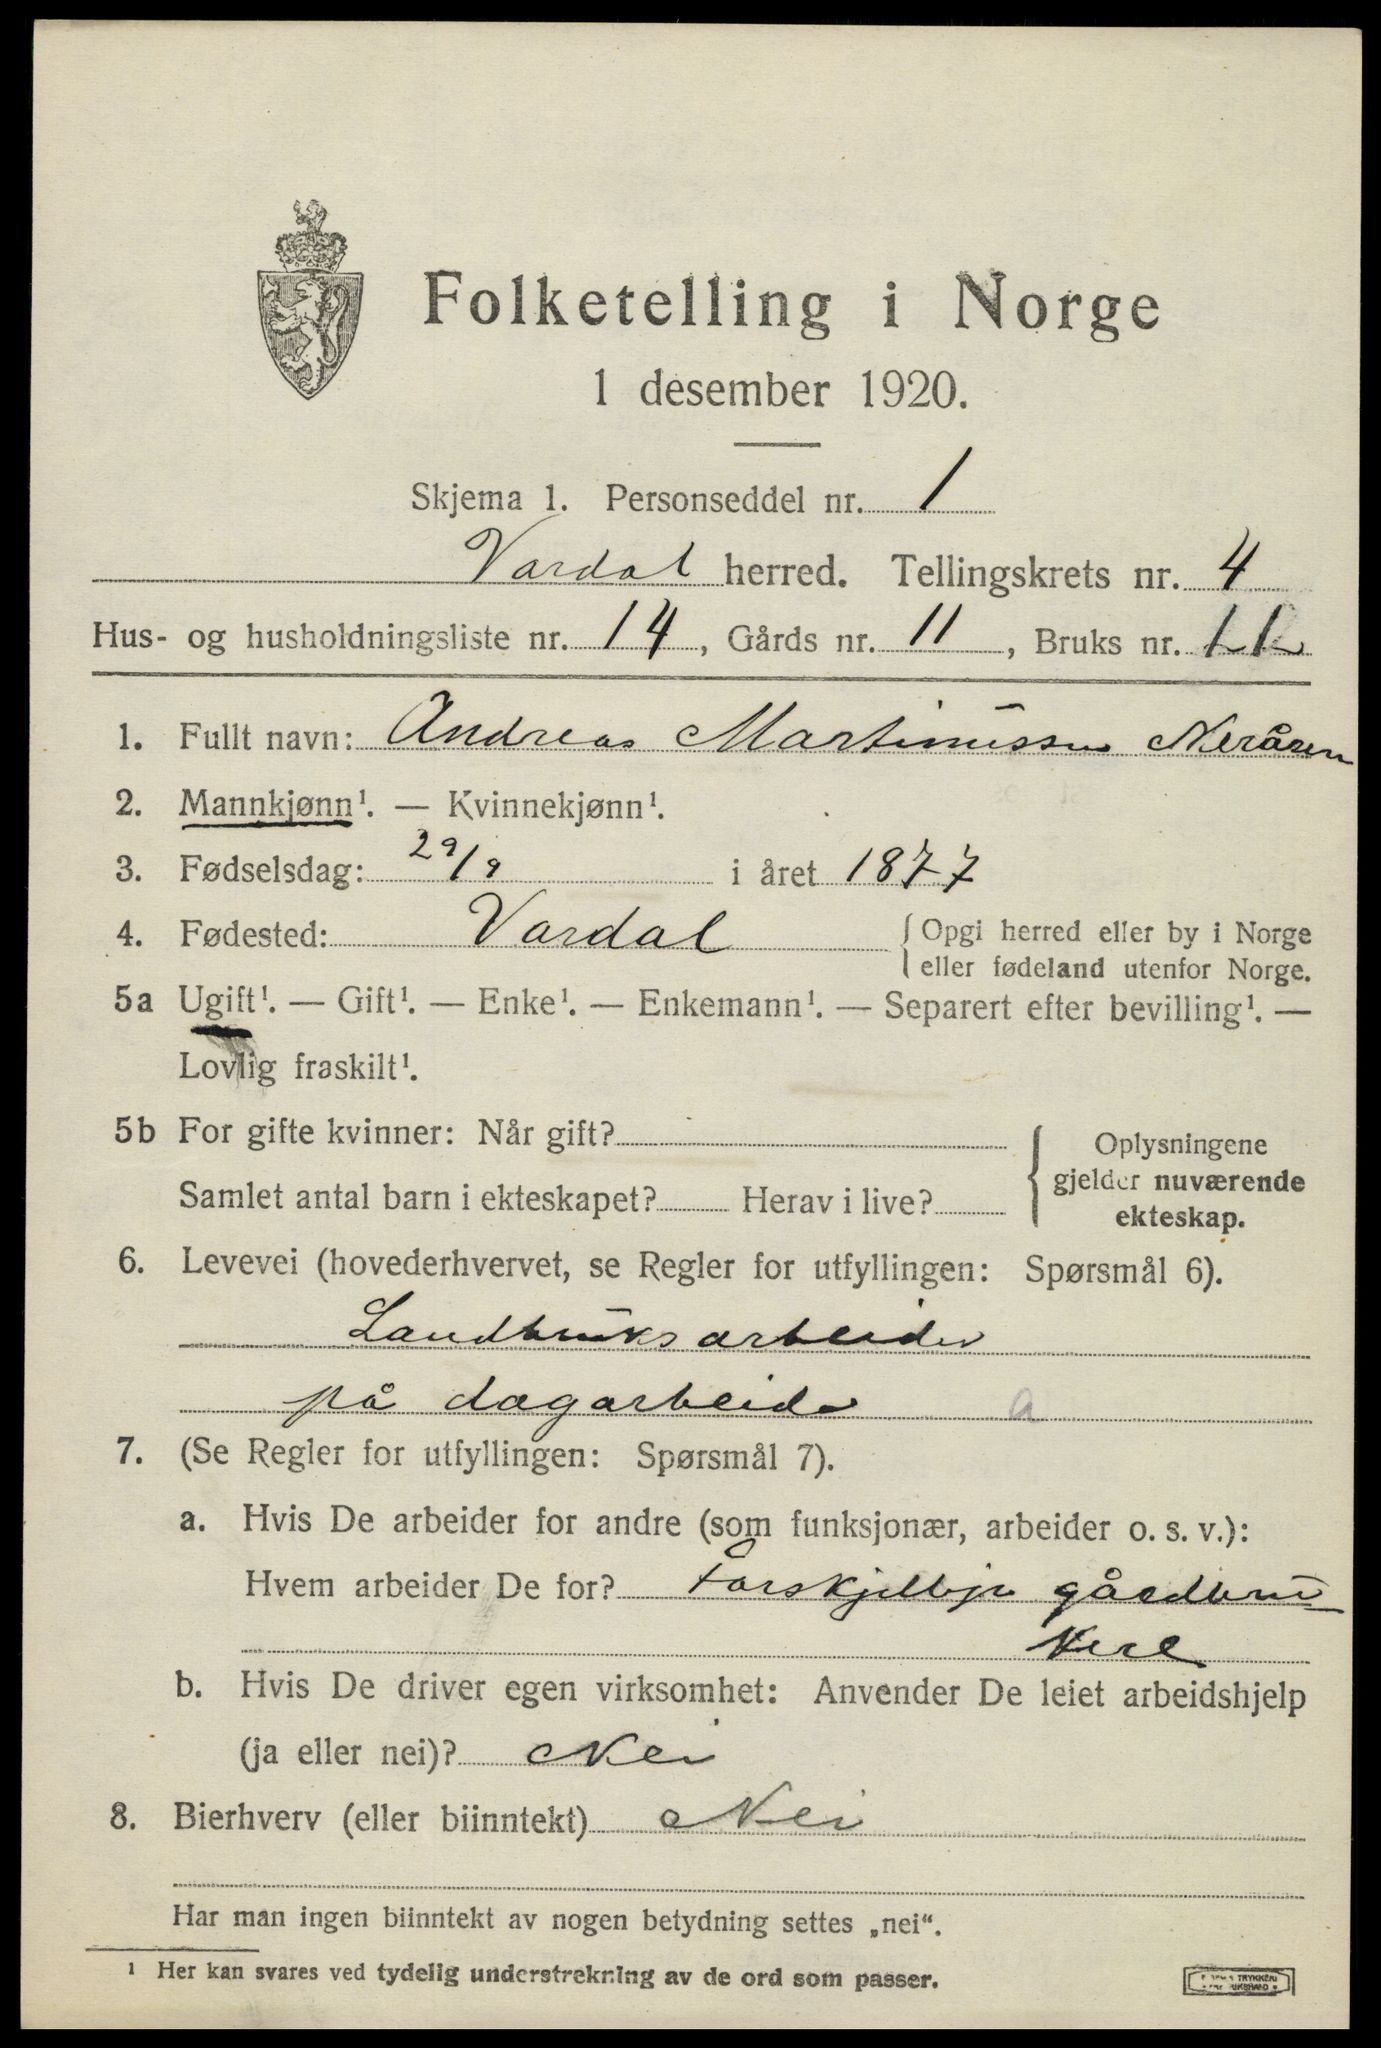 Folketelling i Norge
1 desember 1920.
Skjema 1. Personseddel nr. 1
Vardal herred. Tellingskrets nr. 4
Hus- og husholdningsliste nr. 14, Gårds nr. 11, Bruks nr.
1. Fullt navn: Andreas Martinussen Neråsen
2. Mannkjønn¹. — Kvinnekjønn¹.
3. Fødselsdag: 29/9 i året 1877
4. Fødested: Vardal { Opgi herred eller by i Norge
eller fødeland utenfor Norge.
5a Ugift¹. — Gift¹. — Enke¹. — Enkemann¹. — Separert efter bevilling¹. —
Lovlig fraskilt¹.
5b For gifte kvinner: Når gift? { Oplysningene
gjelder nuværende
Samlet antal barn i ekteskapet? Herav i live?
ekteskap.
6. Levevei (hovederhvervet, se Regler for utfyllingen: Spørsmål 6).
Landbruksarbeider
på dagarbeide a
7. (Se Regler for utfyllingen: Spørsmål 7).
a. Hvis De arbeider for andre (som funksjonær, arbeider o. s. v.):
Hvem arbeider De for? Forskjellige gårdbru-
kere
b. Hvis De driver egen virksomhet: Anvender De leiet arbeidshjelp
(ja eller nei)? Nei
8. Bierhverv (eller biinntekt) Nei
Har man ingen biinntekt av nogen betydning settes „nei“.
¹ Her kan svares ved tydelig understrekning av de ord som passer.
TRYKKERI